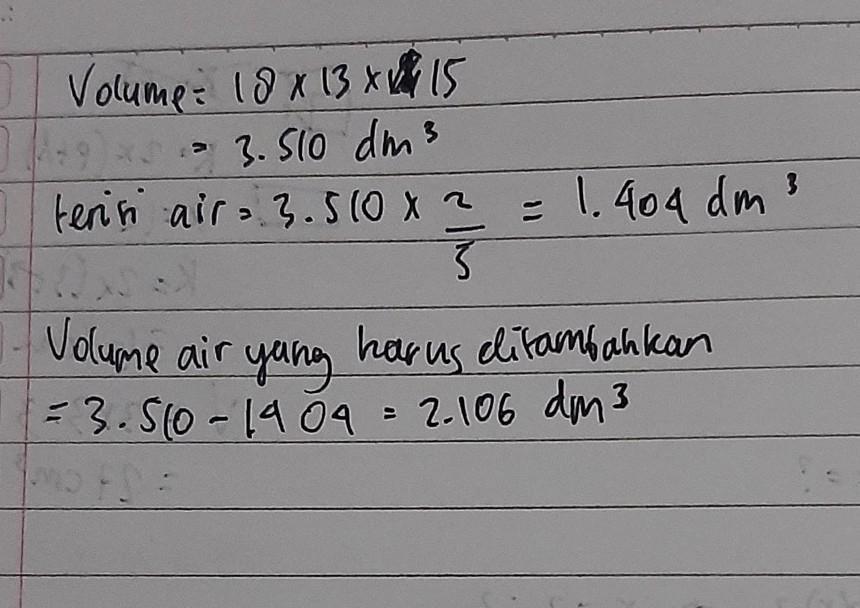 Volume = 18 x 13 x 15
= 3.510 dm³
terisi air = 3.510 x 2/5 = 1.404 dm³
Volume air yang harus ditambahkan
= 3.510 - 1404 = 2.106 dm³